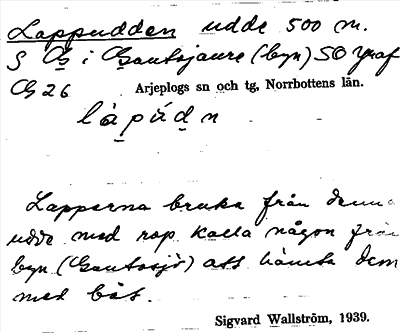 Lappudden udde 500 m.
S G i Gautojaure (byn) SO Graf
G 26 Arjeplogs sn och tg, Norrbottens län.
Lapparna bruka från denna
udde med rop kalla någon från
byn (Gautosjö) att hämta dem
med båt.
Sigvard Wallström, 1939.